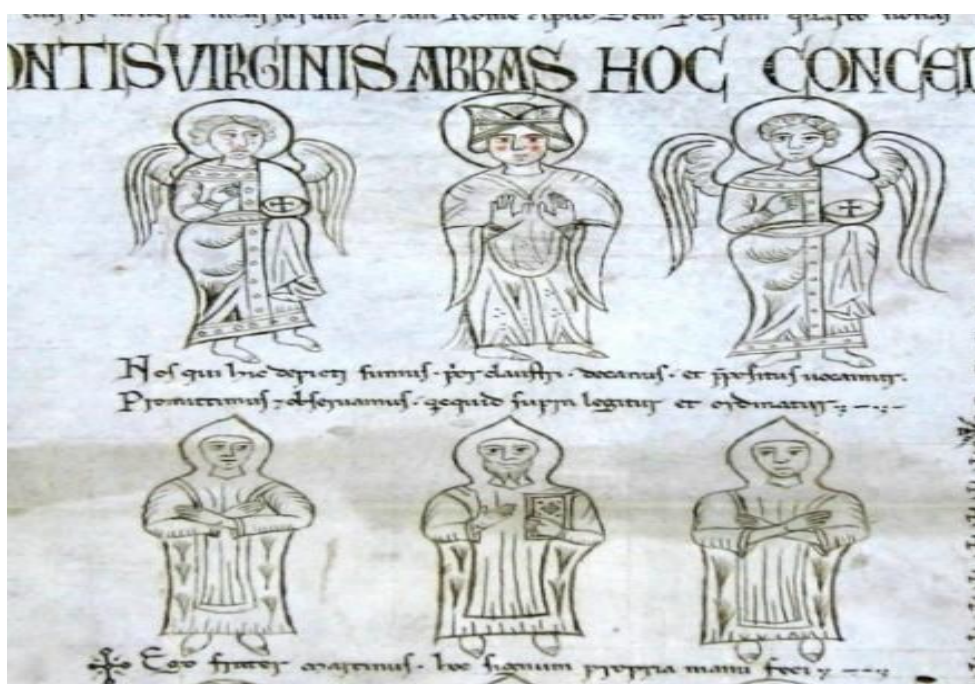 Rome
ONTIS VIRGINIS ABBAS HOC CONCE
Nos qui hic depicti sumus · p̄or claustri · decanus · et p̄positus uocamur.
Promittimus ⁊ obseruamus · quequid supra legitur et ordinatur
Ego frater martinus · hoc signum propria manu feci